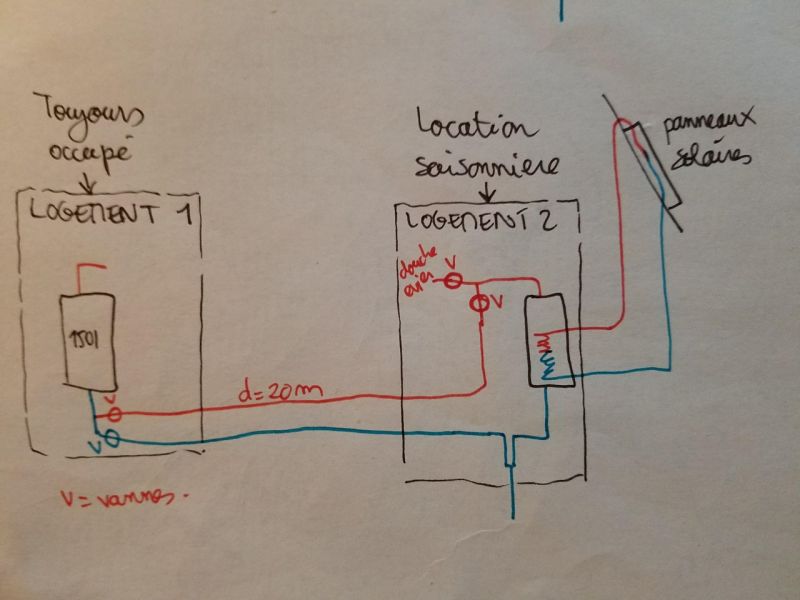 Toujours
occupé
LOGEMENT 1
150l
V
V
V = vannes.
d=20m
Location
saisonniere
LOGEMENT 2
douche
evier
V
V
panneaux
solaires